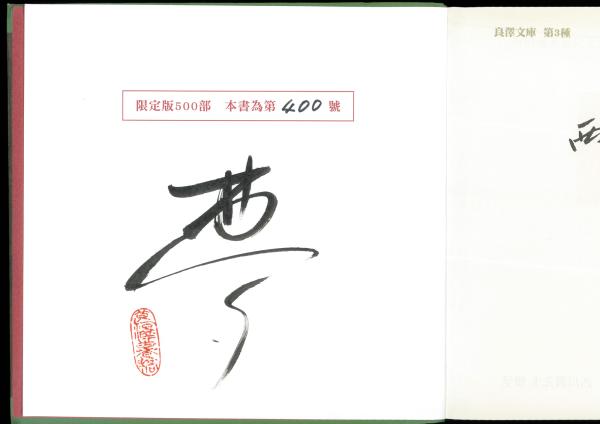 限定版500部 本書為第 400 號
夢
良澤文庫 第3種
西